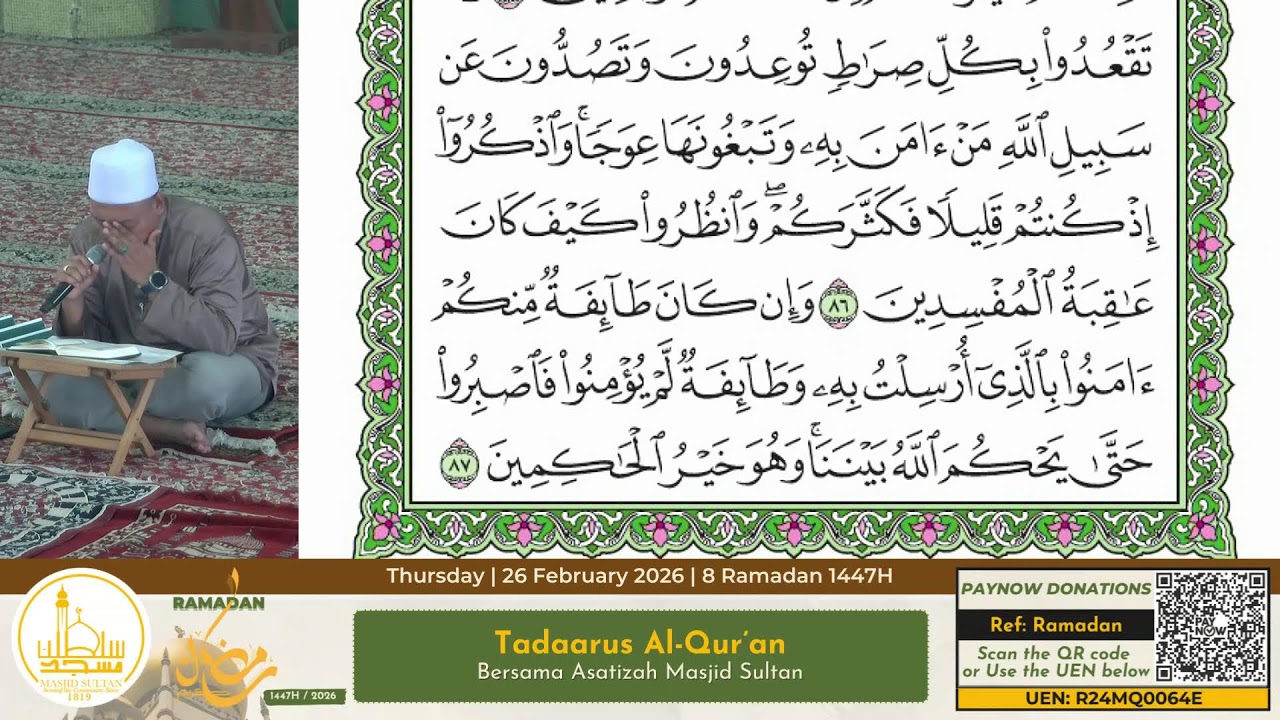 تَقْعُدُوا۟ بِكُلِّ صِرَٰطٍ تُوعِدُونَ وَتَصُدُّونَ عَن
سَبِيلِ ٱللَّهِ مَنْ ءَامَنَ بِهِۦ وَتَبْغُونَهَا عِوَجًا ۚ وَٱذْكُرُوٓا۟
إِذْ كُنتُمْ قَلِيلًا فَكَثَّرَكُمْ ۖ وَٱنظُرُوا۟ كَيْفَ كَانَ
عَٰقِبَةُ ٱلْمُفْسِدِينَ ٨٦ وَإِن كَانَ طَآئِفَةٌ مِّنكُمْ
ءَامَنُوا۟ بِٱلَّذِىٓ أُرْسِلْتُ بِهِۦ وَطَآئِفَةٌ لَّمْ يُؤْمِنُوا۟ فَٱصْبِرُوا۟
حَتَّىٰ يَحْكُمَ ٱللَّهُ بَيْنَنَا ۚ وَهُوَ خَيْرُ ٱلْحَٰكِمِينَ ٨٧
Thursday | 26 February 2026 | 8 Ramadan 1447H
مسجد سلطان
MASJID SULTAN
1819
RAMADAN
رمضان
1447H / 2026
Tadaarus Al-Qur’an
Bersama Asatizah Masjid Sultan
PAYNOW DONATIONS
Ref: Ramadan
Scan the QR code
or Use the UEN below
PAY NOW
UEN: R24MQ0064E